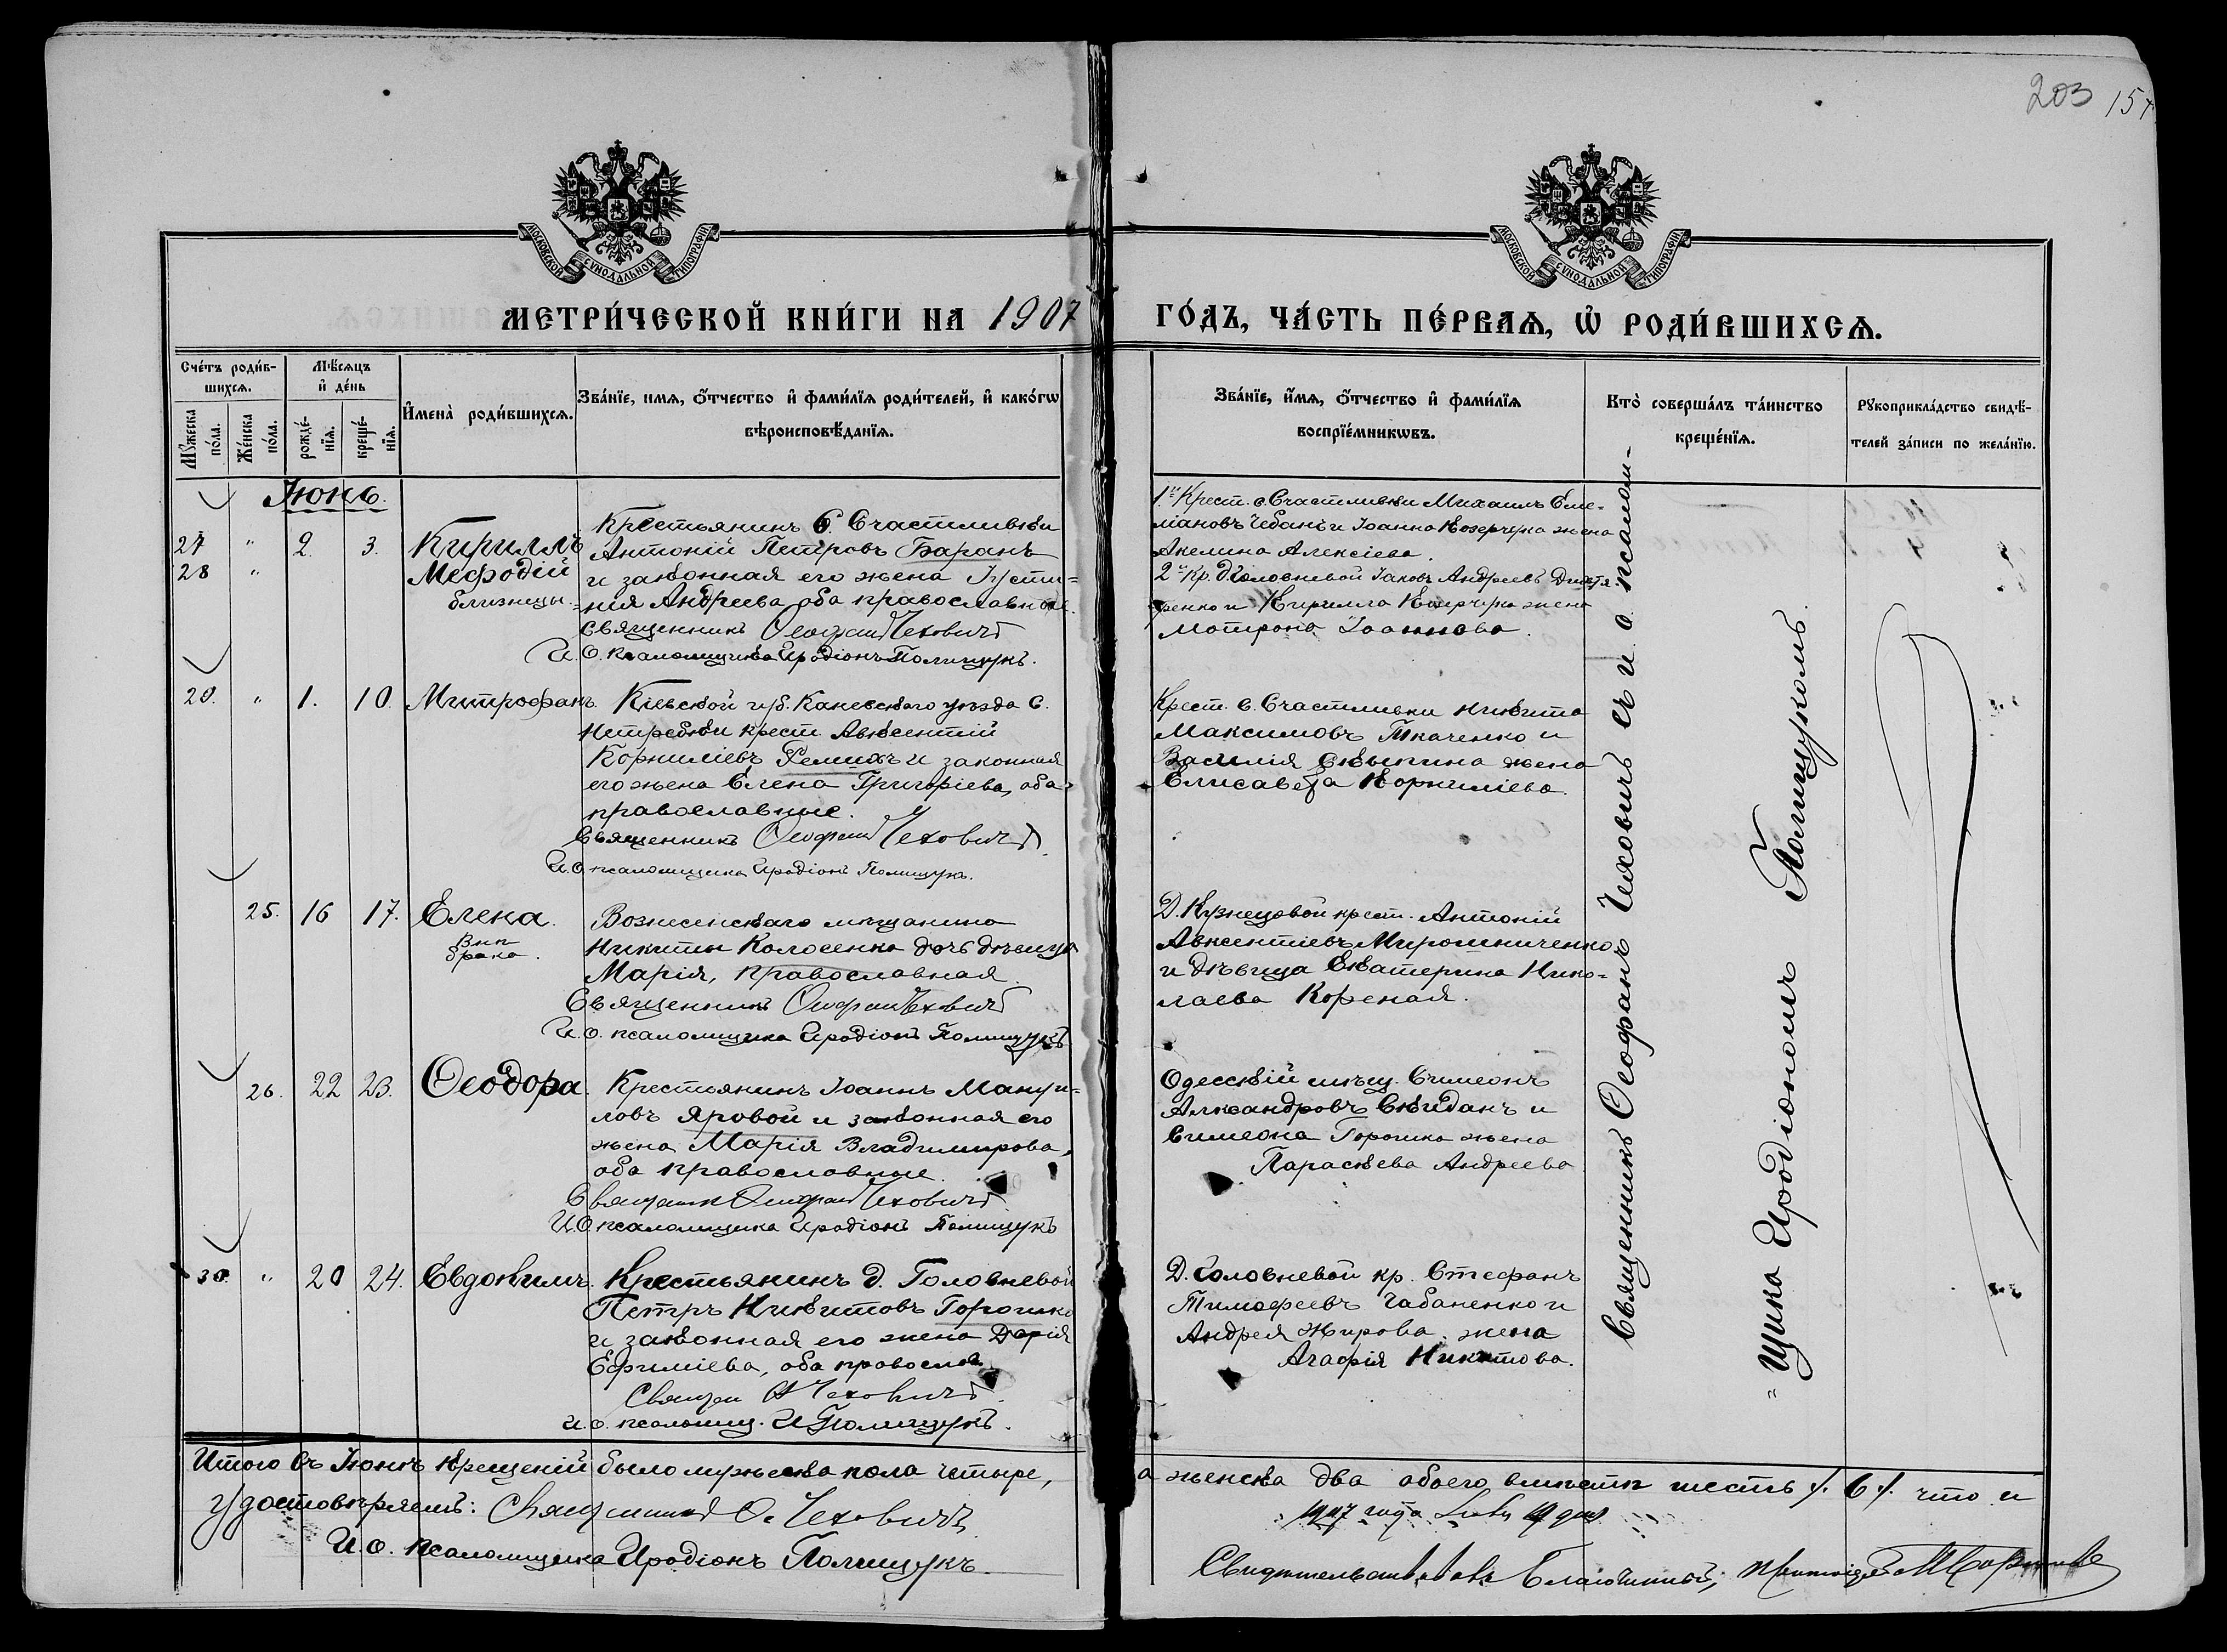 203 157
МОСКОВСКОЙ СѴНОДАЛЬНОЙ ТИПОГРАФІИ
МОСКОВСКОЙ СѴНОДАЛЬНОЙ ТИПОГРАФІИ
МЕТРИ́ЧЕСКОЙ КНИ́ГИ НА 1907 ГО́ДЪ, ЧА́СТЬ ПЕ́РВАѦ, Ѡ РОДИ́ВШИХСѦ.
Сче́тъ роди́в-
шихсѧ.
Мꙋ́жеска по́ла.
Же́нска по́ла.
Мѣ́сѧцъ
и де́нь
рожде́-
нїѧ.
креще́-
нїѧ.
И҆мена̀ роди́вшихсѧ.
Зва́нїе, имѧ, ѻ҆́тчество и҆ фами́лїѧ роди́телей, и҆ како́гѡ
вѣроисповѣ́данїѧ.
Зва́нїе, и҆́мѧ, ѻ҆́тчество и҆ фами́лїѧ
воспрїе́мникѡвъ.
Кто̀ соверша́лъ та́инство
креще́нїѧ.
Рꙋкоприкла́дство свидѣ́-
телей за́писи по жела́нїю.
Іюнь.
27 " 2. 3. Кириллъ
28 " Мефодій
близнецы.
Крестьянинъ С. Счастливки
Антоній Петровъ Баранъ
и законная его жена Густи-
нія Андреева оба православные.
Священникъ Ѳеофанъ Чеховичъ
И. О. псаломщика Иродіонъ Полищукъ.
1.й Крест. с. Счастливки Михаилъ Еме-
ліановъ Чебанъ и Іоанна Козерчука жена
Акелина Алексіева.
2й Кр. д. Головневой Іаковъ Андреевъ
и Кирилла жена
Матрона Іоаннова.
29. " 1. 10. Митрофанъ.
Кіевской губ. Каневскаго уѣзда с.
Нетребки крест. Авксентій
Корниліевъ и законная
его жена Елена Григоріева, оба
православные.
Священникъ Ѳеофанъ Чеховичъ.
И. О. псаломщика Иродіонъ Полищукъ.
Крест. с. Счастливки Никита
Максимовъ Ткаченко и
Василія Скыпина жена
Елисавета Корниліева.
25. 16 17. Елена.
Внѣ
брака.
Вознесенскаго мѣщанина
Никиты Колосенка дочь дѣвица
Марія, православная.
Священникъ Ѳеофанъ Чеховичъ
И. О. псаломщика Иродіонъ Полищукъ
Д. Кузнецовой крест. Антоній
Авксентіевъ Мирошниченко
и дѣвица Екатерина Нико-
лаева Кореная.
26. 22 23. Ѳеодора.
Крестьянинъ Іоаннъ Мануи-
ловъ Яровой и законная его
жена Марія Владимирова,
оба православные.
Священникъ Ѳеофанъ Чеховичъ
И. О. псаломщика Иродіонъ Полищукъ
Одесскій мѣщ. Симеонъ
Александровъ Свиданъ и
Симеона Горошка жена
Параскева Андреева
30. " 20 24. Евдокимъ.
Крестьянинъ д. Головневой
Петръ Никитовъ Горошко
и законная его жена Дарія
Ефиміева, оба православ.
Священ Ѳ Чеховичъ.
и. о. псаломщ. И Полищукъ.
Д. Головневой кр. Стефанъ
Тимофеевъ Чабаненко и
Андрея Жирова жена
Агафія Никитова.
Священникъ Ѳеофанъ Чеховичъ съ и. о. псалом-
=щика Иродіономъ Полищукомъ.
Итого въ Іюнѣ крещеній было мужеска пола четыре, а женска два обоего вмѣстѣ шесть /. 6 /. что и
удостовѣряемъ: Священникъ Ѳ. Чеховичъ
И. О. псаломщика Иродіонъ Полищукъ.
1907 года дня
Свидѣтельствовалъ Благочинный,